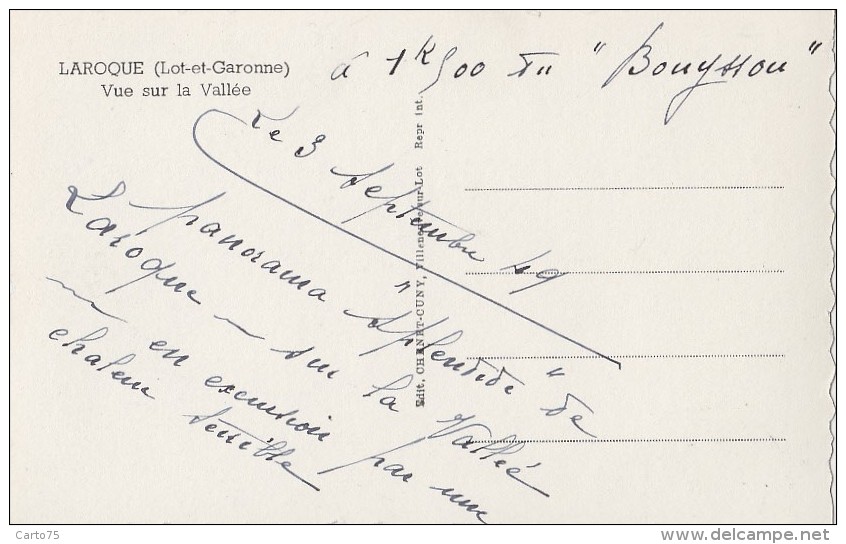 LAROQUE (Lot-et-Garonne)
Vue sur la Vallée
à 1K500 du "Bouysson"
Le 3 septembre 49
panorama "splendide" de
Laroque - sur la Vallée
en excursion par une
chaleur terrible
Edit. CHANRT-CUNY, Villeneuve-sur-Lot Repr int.
Carto75
www.delcampe.net